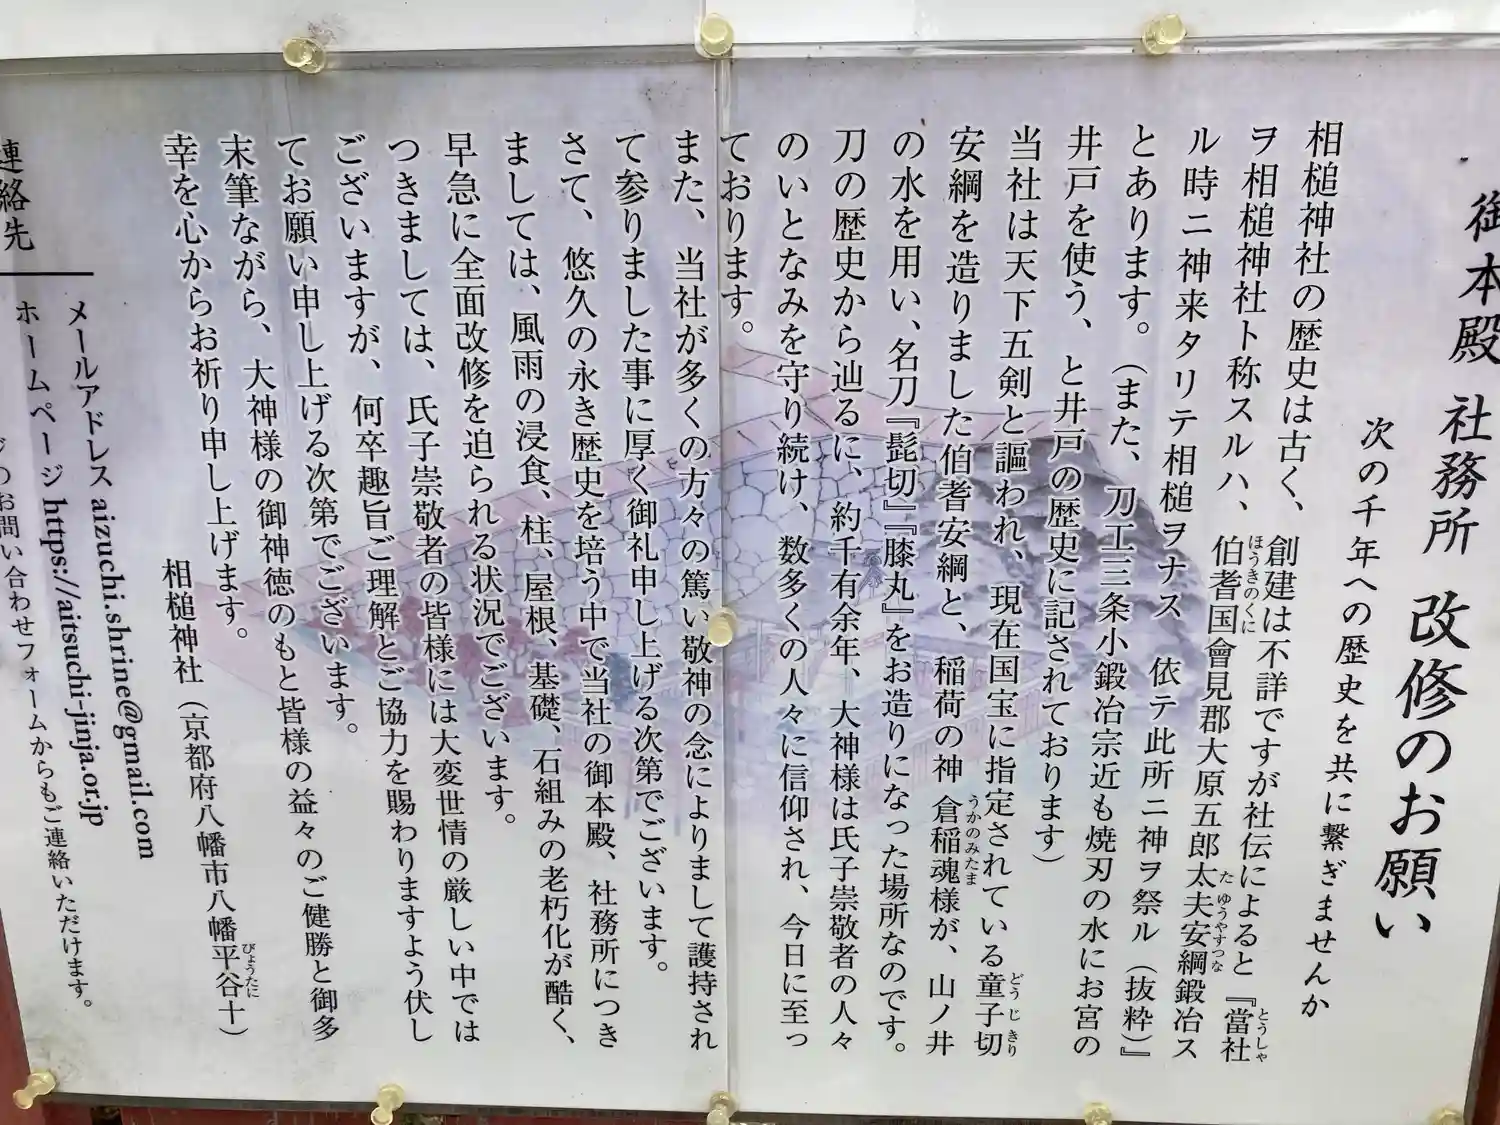 御本殿 社務所 改修のお願い
次の千年への歴史を共に繋ぎませんか
相槌神社の歴史は古く、創建は不詳ですが社伝によると『當社
とうしゃ
ヲ相槌神社ト称スルハ、伯耆国會見郡大原五郎太夫安綱鍛冶ス
ほうきのくに
たゆうやすつな
ル時ニ神来タリテ相槌ヲナス 依テ此所ニ神ヲ祭ル（抜粋）』
とあります。（また、刀工三条小鍛冶宗近も焼刃の水にお宮の
井戸を使う、と井戸の歴史に記されております）
当社は天下五剣と謳われ、現在国宝に指定されている童子切
どうじきり
安綱を造りました伯耆安綱と、稲荷の神 倉稲魂様が、山ノ井
うかのみたま
の水を用い、名刀『髭切』『膝丸』をお造りになった場所なのです。
刀の歴史から辿るに、約千有余年、大神様は氏子崇敬者の人々
のいとなみを守り続け、数多くの人々に信仰され、今日に至っ
ております。
また、当社が多くの方々の篤い敬神の念によりまして護持され
て参りました事に厚く御礼申し上げる次第でございます。
さて、悠久の永き歴史を培う中で当社の御本殿、社務所につき
ましては、風雨の浸食、柱、屋根、基礎、石組みの老朽化が酷く、
早急に全面改修を迫られる状況でございます。
つきましては、氏子崇敬者の皆様には大変世情の厳しい中では
ございますが、何卒趣旨ご理解とご協力を賜わりますよう伏し
てお願い申し上げる次第でございます。
末筆ながら、大神様の御神徳のもと皆様の益々のご健勝と御多
幸を心からお祈り申し上げます。
相槌神社（京都府八幡市八幡平谷十）
びょうたに
連絡先
メールアドレス aizuchi.shrine@gmail.com
ホームページ https://aitsuchi-jinja.or.jp
のお問い合わせフォームからもご連絡いただけます。